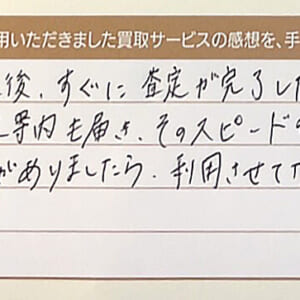 用いただきました買取サービスの感想を、手
後、すぐに査定が完了した
案内も届き、そのスピードの
がありましたら、利用させてた